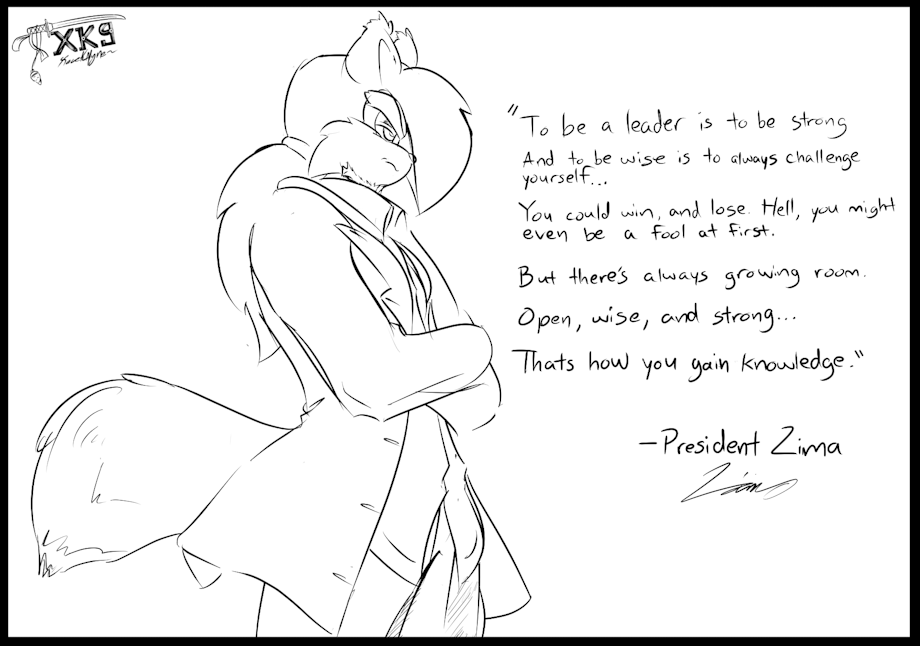 XK9
"To be a leader is to be strong
And to be wise is to always challenge
yourself...
You could win, and lose. Hell, you might
even be a fool at first.
But there's always growing room.
Open, wise, and strong...
Thats how you gain knowledge."
-President Zima
Zima